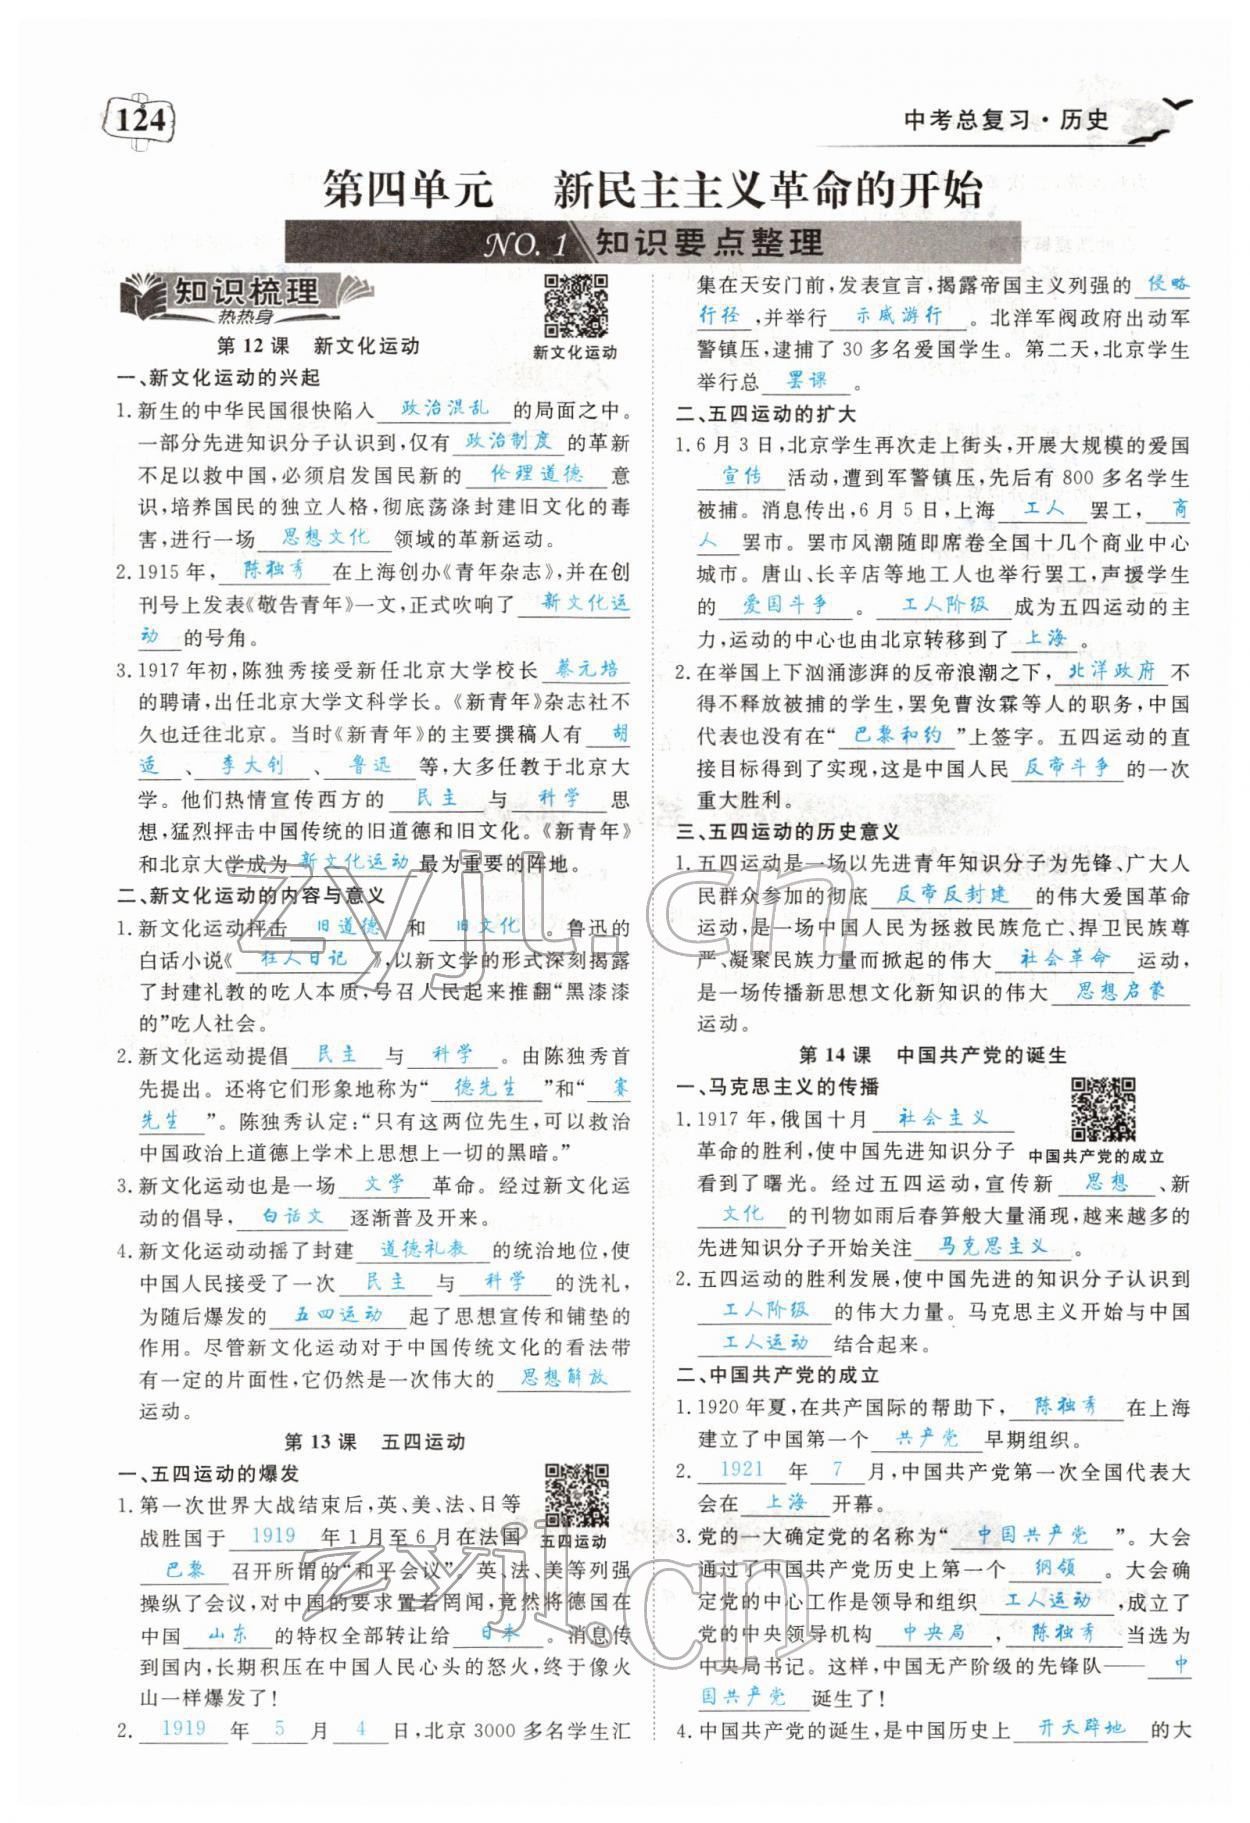 124
中考总复习·历史
第四单元 新民主主义革命的开始
NO. 1 知识要点整理
知识梳理
热热身
新文化运动
第 12 课 新文化运动
一、新文化运动的兴起
1. 新生的中华民国很快陷入 政治混乱 的局面之中。
一部分先进知识分子认识到,仅有 政治制度 的革新
不足以救中国,必须启发国民新的 伦理道德 意
识,培养国民的独立人格,彻底荡涤封建旧文化的毒
害,进行一场 思想文化 领域的革新运动。
2. 1915 年, 陈独秀 在上海创办《青年杂志》,并在创
刊号上发表《敬告青年》一文,正式吹响了 新文化运
动 的号角。
3. 1917 年初,陈独秀接受新任北京大学校长 蔡元培
的聘请,出任北京大学文科学长。《新青年》杂志社不
久也迁往北京。当时《新青年》的主要撰稿人有 胡
适 、 李大钊 、 鲁迅 等,大多任教于北京大
学。他们热情宣传西方的 民主 与 科学 思
想,猛烈抨击中国传统的旧道德和旧文化。《新青年》
和北京大学成为 新文化运动 最为重要的阵地。
二、新文化运动的内容与意义
1. 新文化运动抨击 旧道德 和 旧文化 。鲁迅的
白话小说《 狂人日记 》,以新文学的形式深刻揭露
了封建礼教的吃人本质,号召人民起来推翻“黑漆漆
的”吃人社会。
2. 新文化运动提倡 民主 与 科学 。由陈独秀首
先提出。还将它们形象地称为“ 德先生 ”和“ 赛
先生 ”。陈独秀认定:“只有这两位先生,可以救治
中国政治上道德上学术上思想上一切的黑暗。”
3. 新文化运动也是一场 文学 革命。经过新文化运
动的倡导, 白话文 逐渐普及开来。
4. 新文化运动动摇了封建 道德礼教 的统治地位,使
中国人民接受了一次 民主 与 科学 的洗礼,
为随后爆发的 五四运动 起了思想宣传和铺垫的
作用。尽管新文化运动对于中国传统文化的看法带
有一定的片面性,它仍然是一次伟大的 思想解放
运动。
第 13 课 五四运动
一、五四运动的爆发
1. 第一次世界大战结束后,英、美、法、日等
战胜国于 1919 年 1 月至 6 月在法国
五四运动
巴黎 召开所谓的“和平会议”。英、法、美等列强
操纵了会议,对中国的要求置若罔闻,竟然将德国在
中国 山东 的特权全部转让给 日本 。消息传
到国内,长期积压在中国人民心头的怒火,终于像火
山一样爆发了!
2. 1919 年 5 月 4 日,北京 3000 多名学生汇
集在天安门前,发表宣言,揭露帝国主义列强的 侵略
行径 ,并举行 示威游行 。北洋军阀政府出动军
警镇压,逮捕了 30 多名爱国学生。第二天,北京学生
举行总 罢课 。
二、五四运动的扩大
1. 6 月 3 日,北京学生再次走上街头,开展大规模的爱国
宣传 活动,遭到军警镇压,先后有 800 多名学生
被捕。消息传出,6 月 5 日,上海 工人 罢工, 商
人 罢市。罢市风潮随即席卷全国十几个商业中心
城市。唐山、长辛店等地工人也举行罢工,声援学生
的 爱国斗争 。 工人阶级 成为五四运动的主
力,运动的中心也由北京转移到了 上海 。
2. 在举国上下汹涌澎湃的反帝浪潮之下, 北洋政府 不
得不释放被捕的学生,罢免曹汝霖等人的职务,中国
代表也没有在“ 巴黎和约 ”上签字。五四运动的直
接目标得到了实现,这是中国人民 反帝斗争 的一次
重大胜利。
三、五四运动的历史意义
1. 五四运动是一场以先进青年知识分子为先锋、广大人
民群众参加的彻底 反帝反封建 的伟大爱国革命
运动,是一场中国人民为拯救民族危亡、捍卫民族尊
严、凝聚民族力量而掀起的伟大 社会革命 运动,
是一场传播新思想文化新知识的伟大 思想启蒙
运动。
第 14 课 中国共产党的诞生
一、马克思主义的传播
1. 1917 年,俄国十月 社会主义
革命的胜利,使中国先进知识分子
中国共产党的成立
看到了曙光。经过五四运动,宣传新 思想 、新
文化 的刊物如雨后春笋般大量涌现,越来越多的
先进知识分子开始关注 马克思主义 。
2. 五四运动的胜利发展,使中国先进的知识分子认识到
工人阶级 的伟大力量。马克思主义开始与中国
工人运动 结合起来。
二、中国共产党的成立
1. 1920 年夏,在共产国际的帮助下, 陈独秀 在上海
建立了中国第一个 共产党 早期组织。
2. 1921 年 7 月,中国共产党第一次全国代表大
会在 上海 开幕。
3. 党的一大确定党的名称为“ 中国共产党 ”。大会
通过了中国共产党历史上第一个 纲领 。大会确
定党的中心工作是领导和组织 工人运动 ,成立了
党的中央领导机构 中央局 , 陈独秀 当选为
中央局书记。这样,中国无产阶级的先锋队—— 中
国共产党 诞生了!
4. 中国共产党的诞生,是中国历史上 开天辟地 的大
zyjl.cn
zyjl.cn